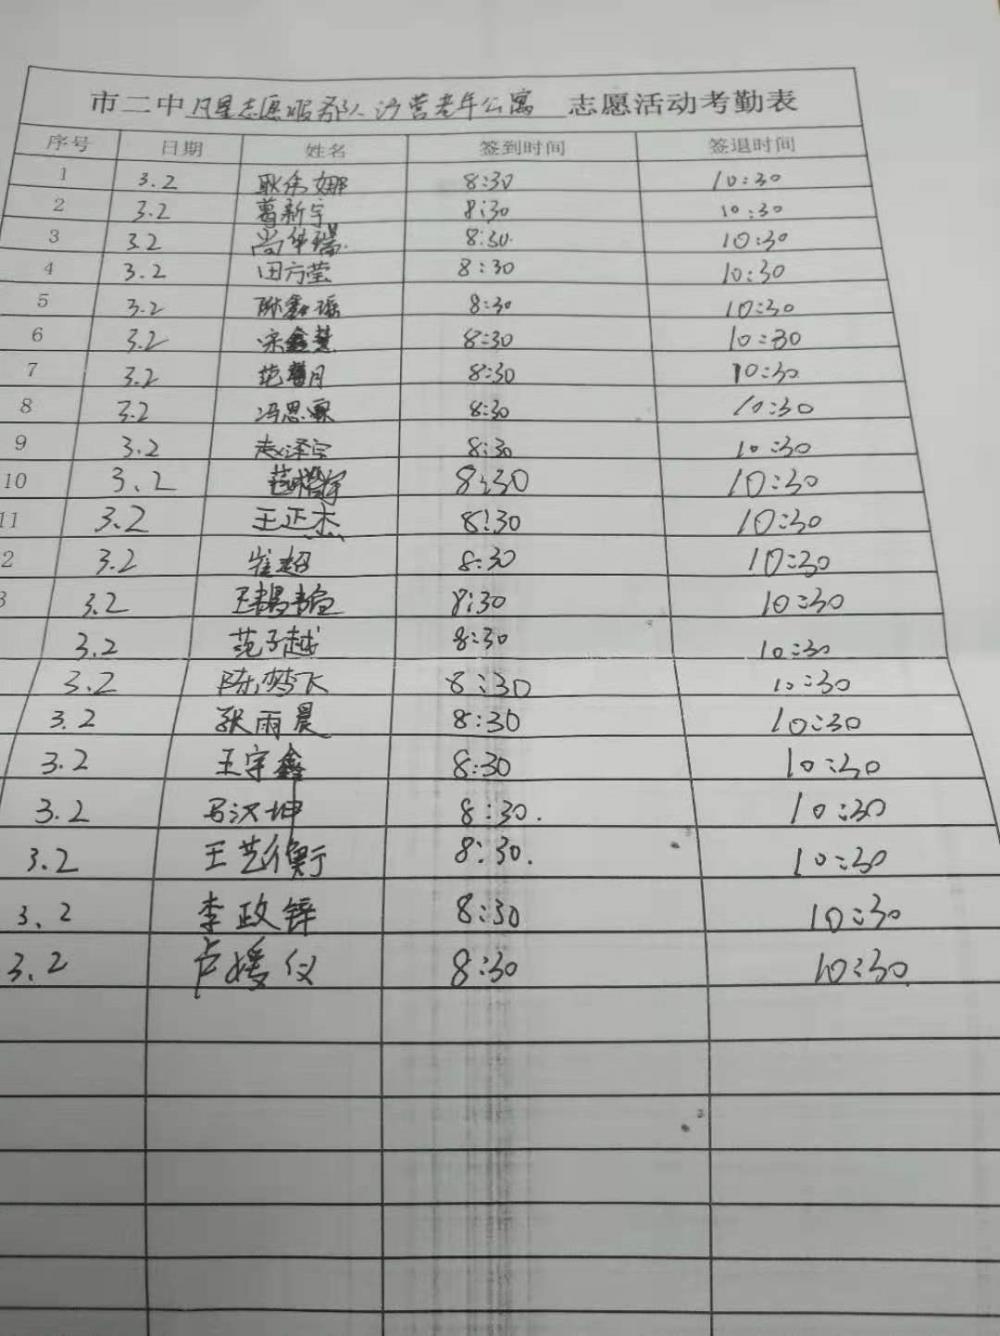 市二中 星志愿服务队 营老年公寓 志愿活动考勤表
序号 日期 姓名 签到时间 签退时间
1 3.2 耿伟娜 8:30 10:30
2 3.2 葛新宇 8:30 10:30
3 3.2 尚华瑞 8:30 10:30
4 3.2 田方莹 8:30 10:30
5 3.2 8:30 10:30
6 3.2 宋鑫慧 8:30 10:30
7 3.2 范 月 8:30 10:30
8 3.2 冯思源 8:30 10:30
9 3.2 赵泽宇 8:30 10:30
10 3.2 范 8:30 10:30
11 3.2 王正杰 8:30 10:30
2 3.2 崔超 8:30 10:30
3 3.2 王 8:30 10:30
3.2 范子越 8:30 10:30
3.2 陈梦飞 8:30 10:30
3.2 张雨晨 8:30 10:30
3.2 王宇鑫 8:30 10:30
3.2 马沢坤 8:30. 10:30
3.2 王艺衡 8:30. 10:30
3.2 李政锌 8:30 10:30
3.2 卢媛仪 8:30 10:30